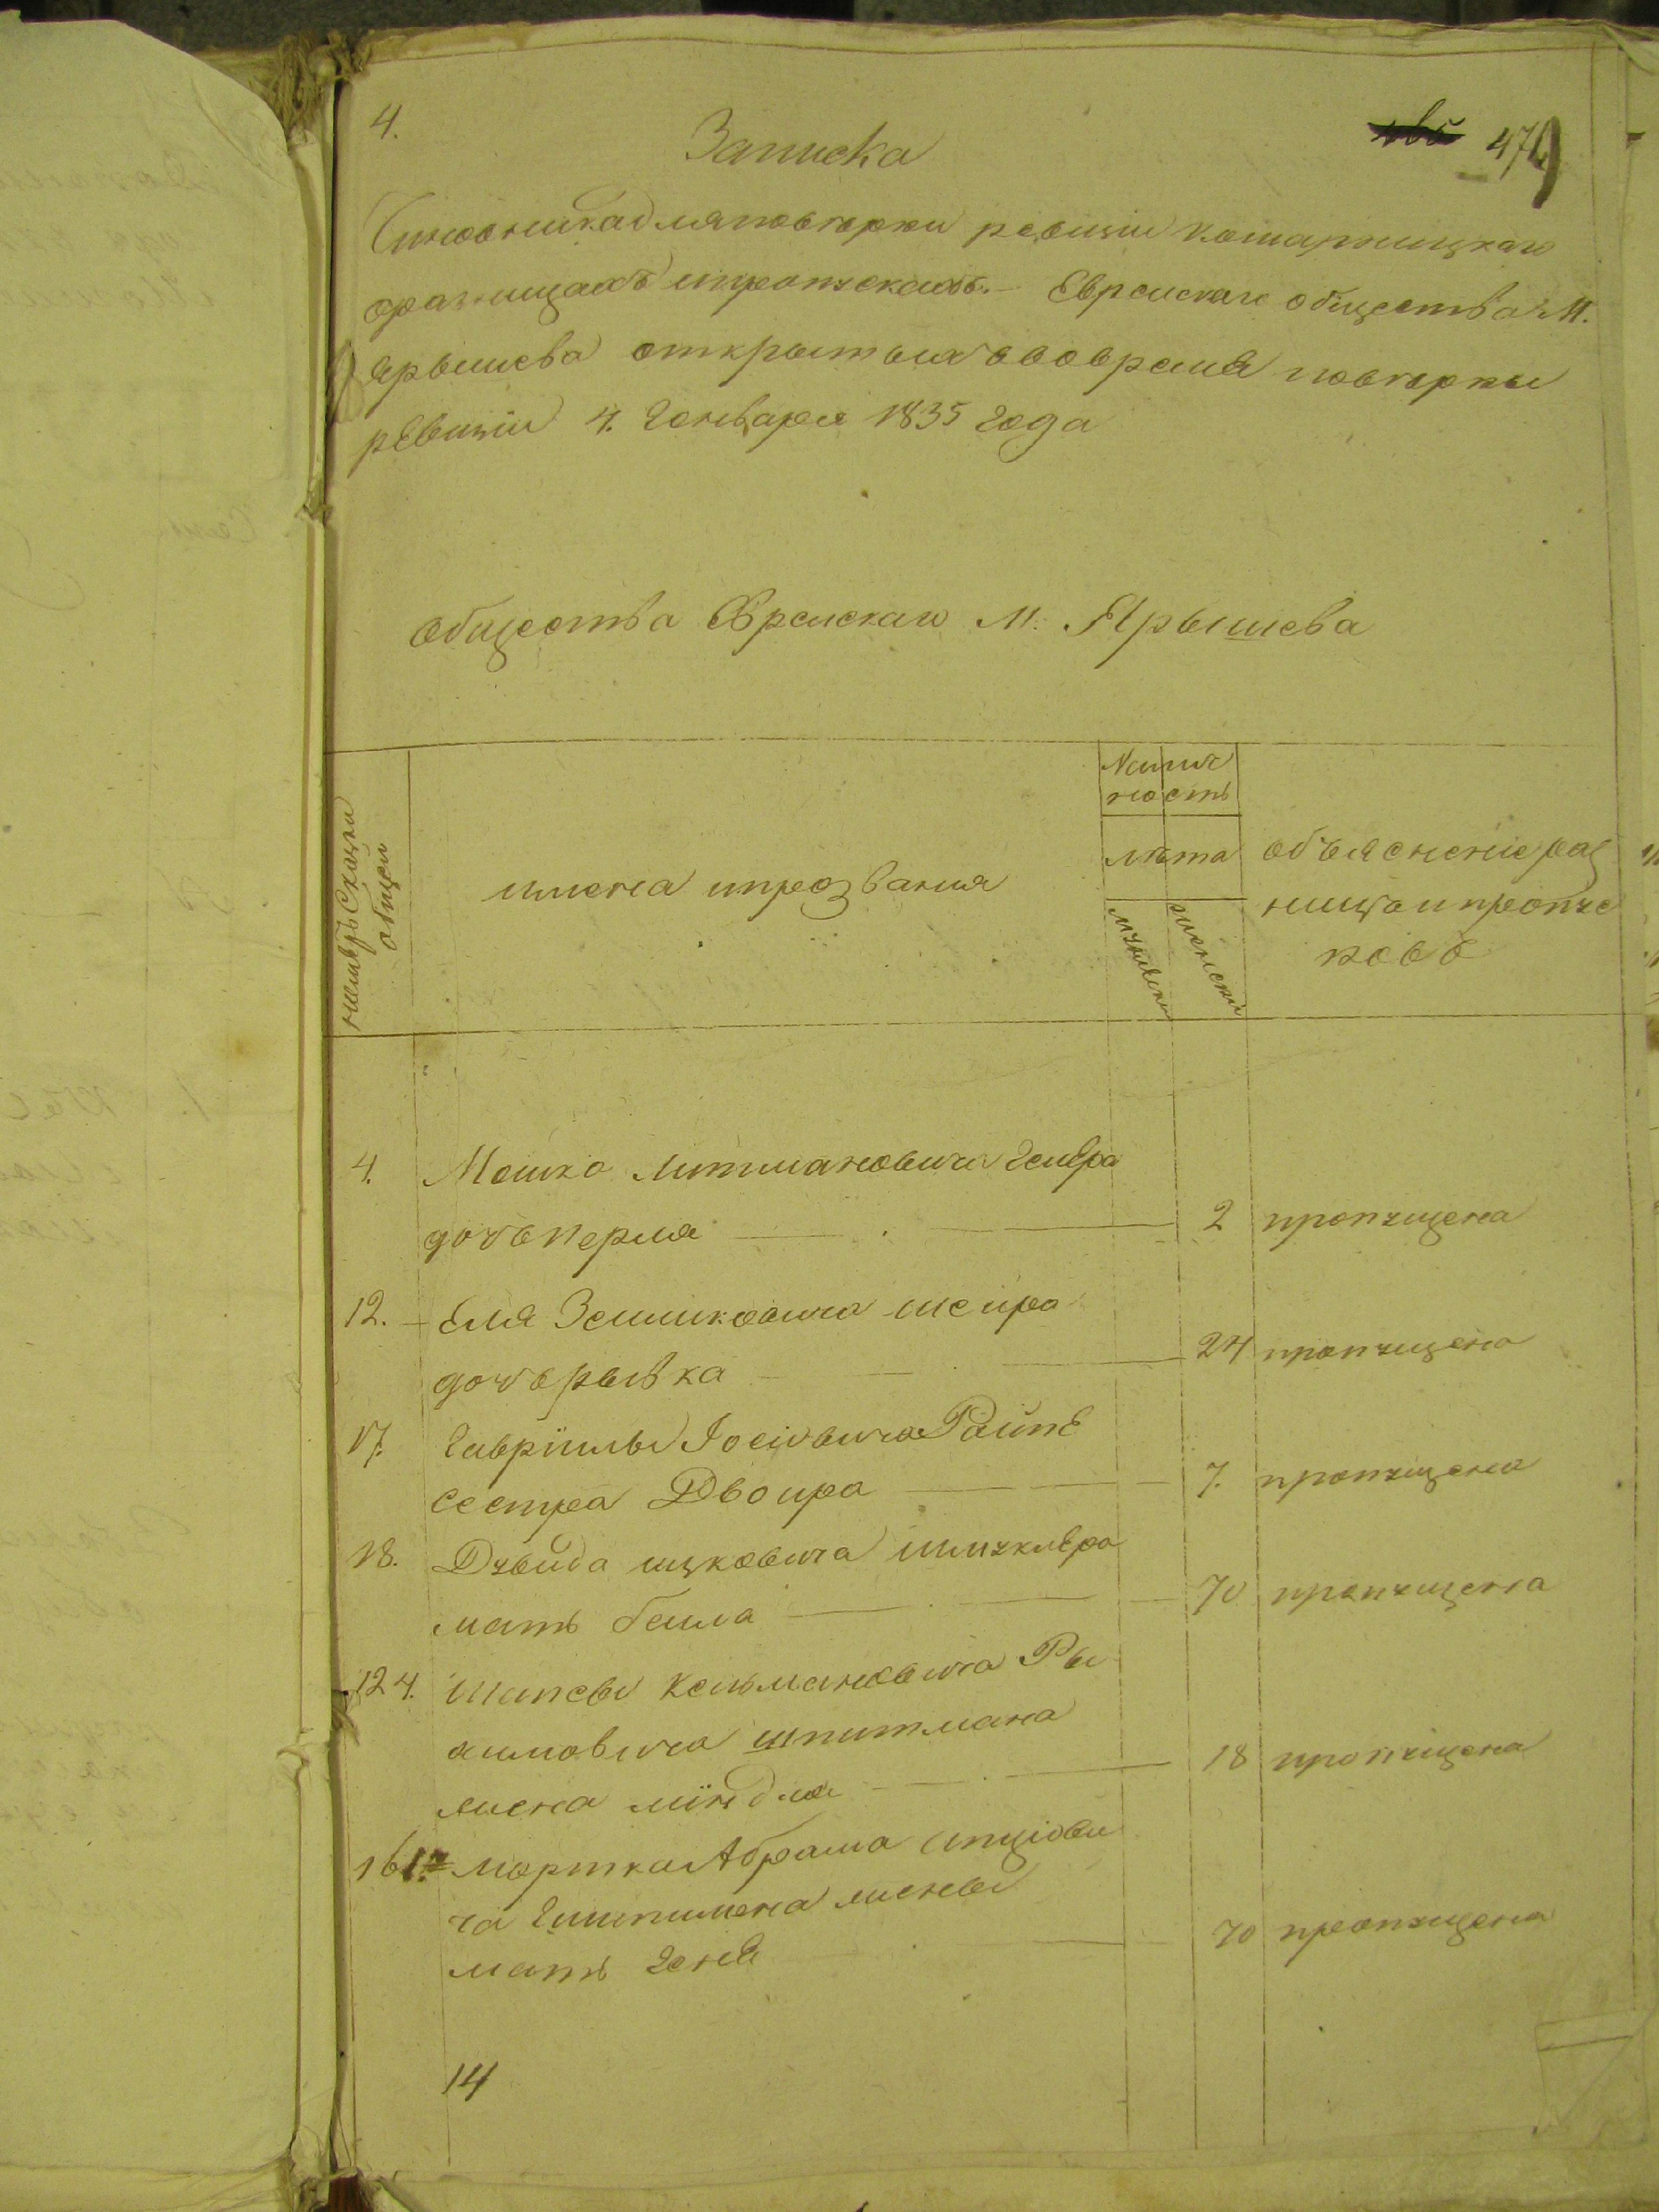 4.
Записка
479
Чиновника для поверки ревизии Комарницкаго
о разницахъ и пропускахъ. Еврейскаго общества М.
Ярышева открытыхъ вовремя поверки
ревизіи 4. Генваря 1835 года
Общества Еврейскаго М. Ярышева
нумеръ Сказки
общей
имена и прозвания
Налич
ность
лета
мужески
женски
объяснение раз
ницъ и пропус
ковъ
4. Мошко Литмановича Гелера
дочь Перля 2 пропущена
12. Еля Зеликовича Шейра
дочь рывка 24 пропущена
17. Гавріилы Іосіовича
сестра Двойра 7. пропущена
18. Дувида ицковича Шмуклера
мать бейла 70 пропущена
124. Шапсы Кельмановича
шпитмана
жена миндля 18 пропущена
161. Мортка Абрама
ча жены
мать Геня 70 пропущена
14